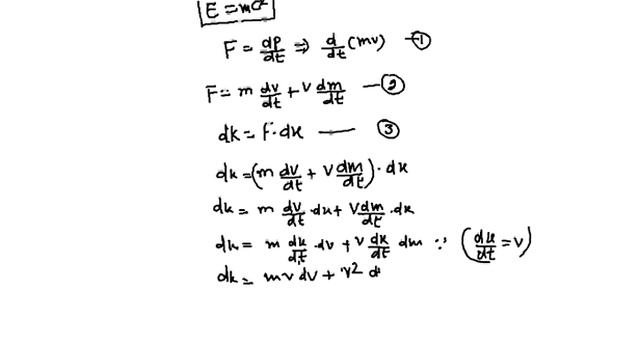 E = mc²
F = dp/dt ⇒ d/dt (mv) —①
F = m dv/dt + v dm/dt —②
dk = F · dx — ③
dk = (m dv/dt + v dm/dt) · dx
dk = m dv/dt · dx + v dm/dt · dx
dk = m dx/dt · dv + v dx/dt dm ∵ (dx/dt = v)
dk = mv dv + v² d